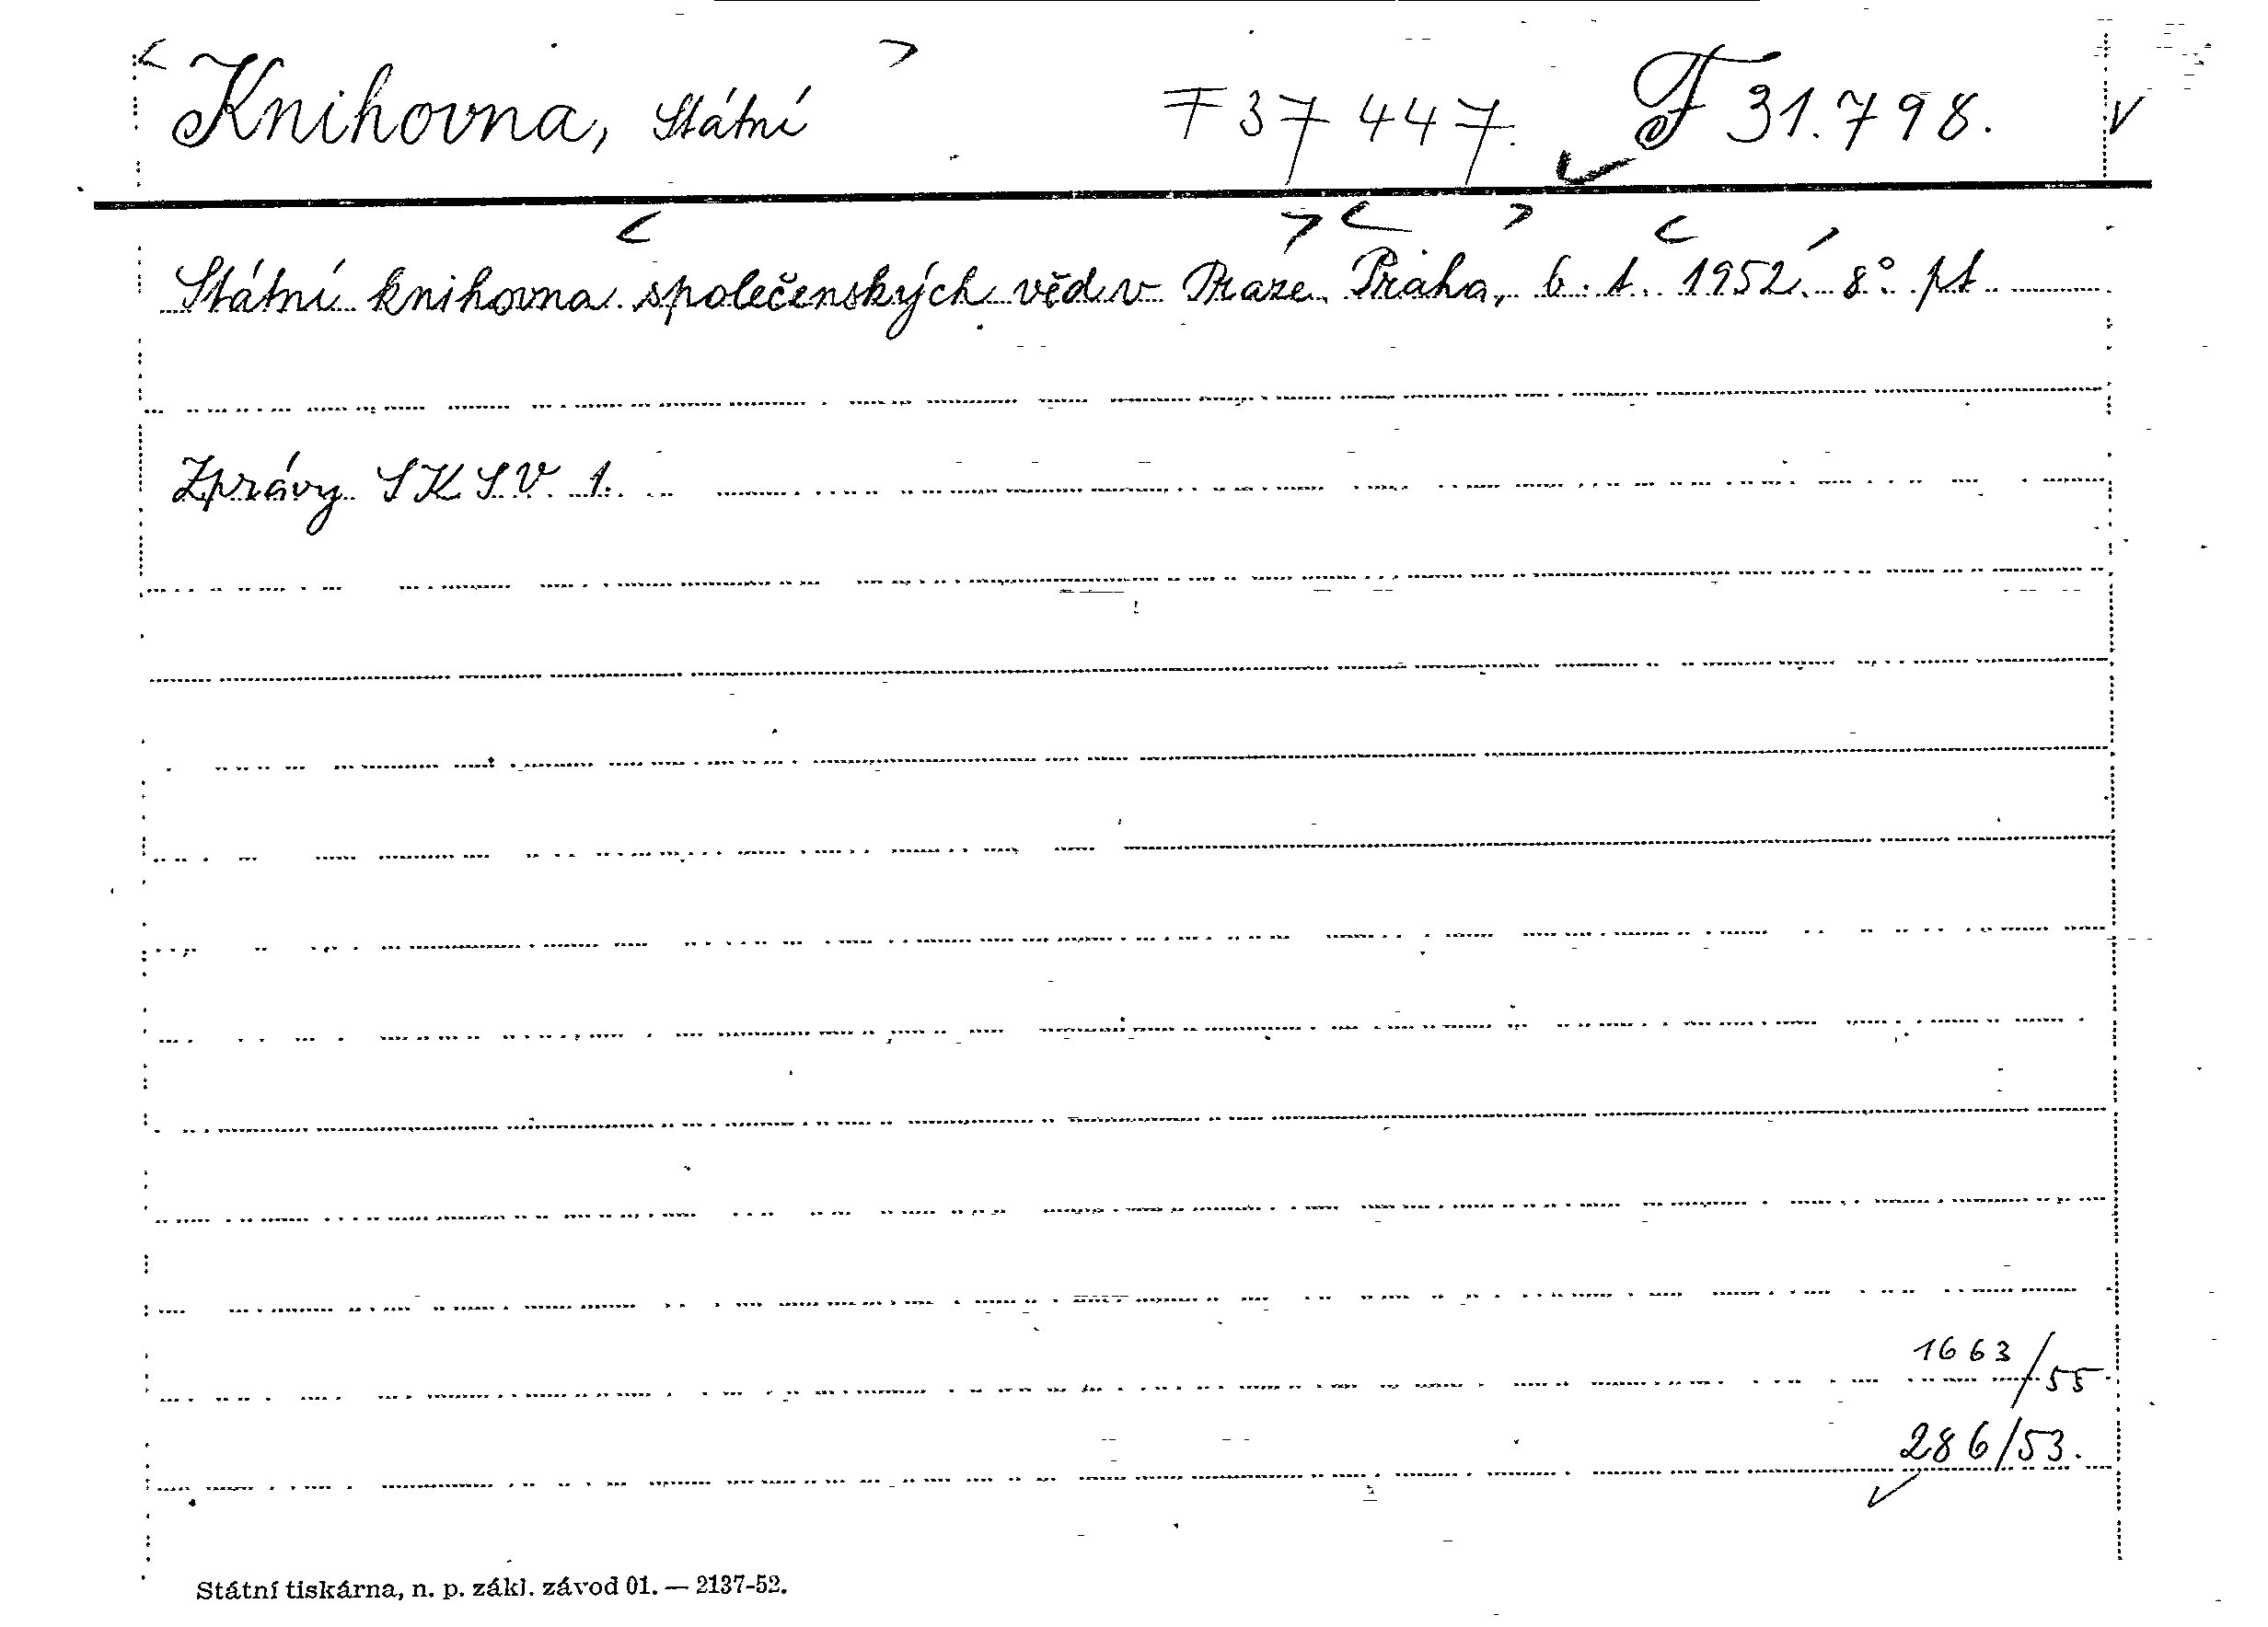 Knihovna, Státní F 37 447. F 31.798.
Státní knihovna společenských věd v Praze. Praha, b. t. 1952. 8° pt
Zprávy SKSV 1.
1663/55
286/53.
Státní tiskárna, n. p. zákl. závod 01. — 2137-52.